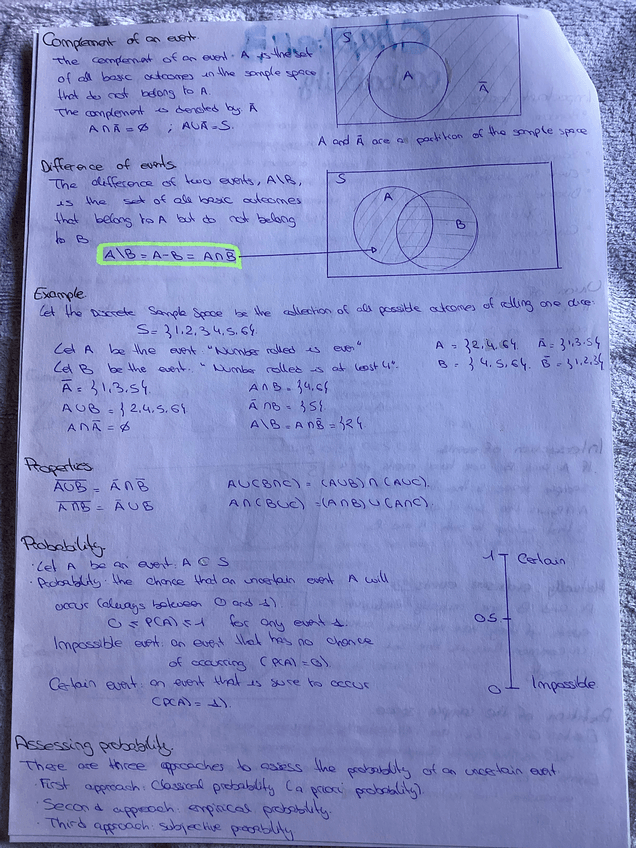 Complement of an event.
The complement of an event A is the set
of all basic outcomes in the sample space
that do not belong to A.
The complement is denoted by Ā
A∩Ā = ∅ ; A∪Ā = S.
S
A
Ā
A and Ā are a partition of the sample space
Difference of events.
The difference of two events, A\B,
is the set of all basic outcomes
that belong to A but do not belong
to B
A\B = A-B = A∩B̄
S
A
B
Example.
Let the Discrete Sample Space be the collection of all possible outcomes of rolling one dice:
S = {1,2,3,4,5,6}.
Let A be the event "Number rolled is even"
A = {2,4,6} Ā = {1,3,5}
Let B be the event "Number rolled is at least 4".
B = {4,5,6} B̄ = {1,2,3}
Ā = {1,3,5}. A∩B = {4,6}
A∪B = {2,4,5,6} Ā∩B = {5}
A∩Ā = ∅ A\B = A∩B̄ = {2}
Properties.
A̅∪̅B̅ = Ā∩B̄ A∪(B∩C) = (A∪B)∩(A∪C).
A̅∩̅B̅ = Ā∪B̄ A∩(B∪C) = (A∩B)∪(A∩C).
Probability.
· Let A be an event: A ⊂ S
· Probability: the chance that an uncertain event A will
occur (always between 0 and 1)
0 ≤ P(A) ≤ 1 for any event
Impossible event: an event that has no chance
of occurring (P(A) = 0).
Certain event: an event that is sure to occur
(P(A) = 1).
1 Certain
0.5
0 Impossible
Assessing probability.
There are three approaches to assess the probability of an uncertain event.
· First approach: Classical probability (a priori probability).
· Second approach: empirical probability.
· Third approach: subjective probability